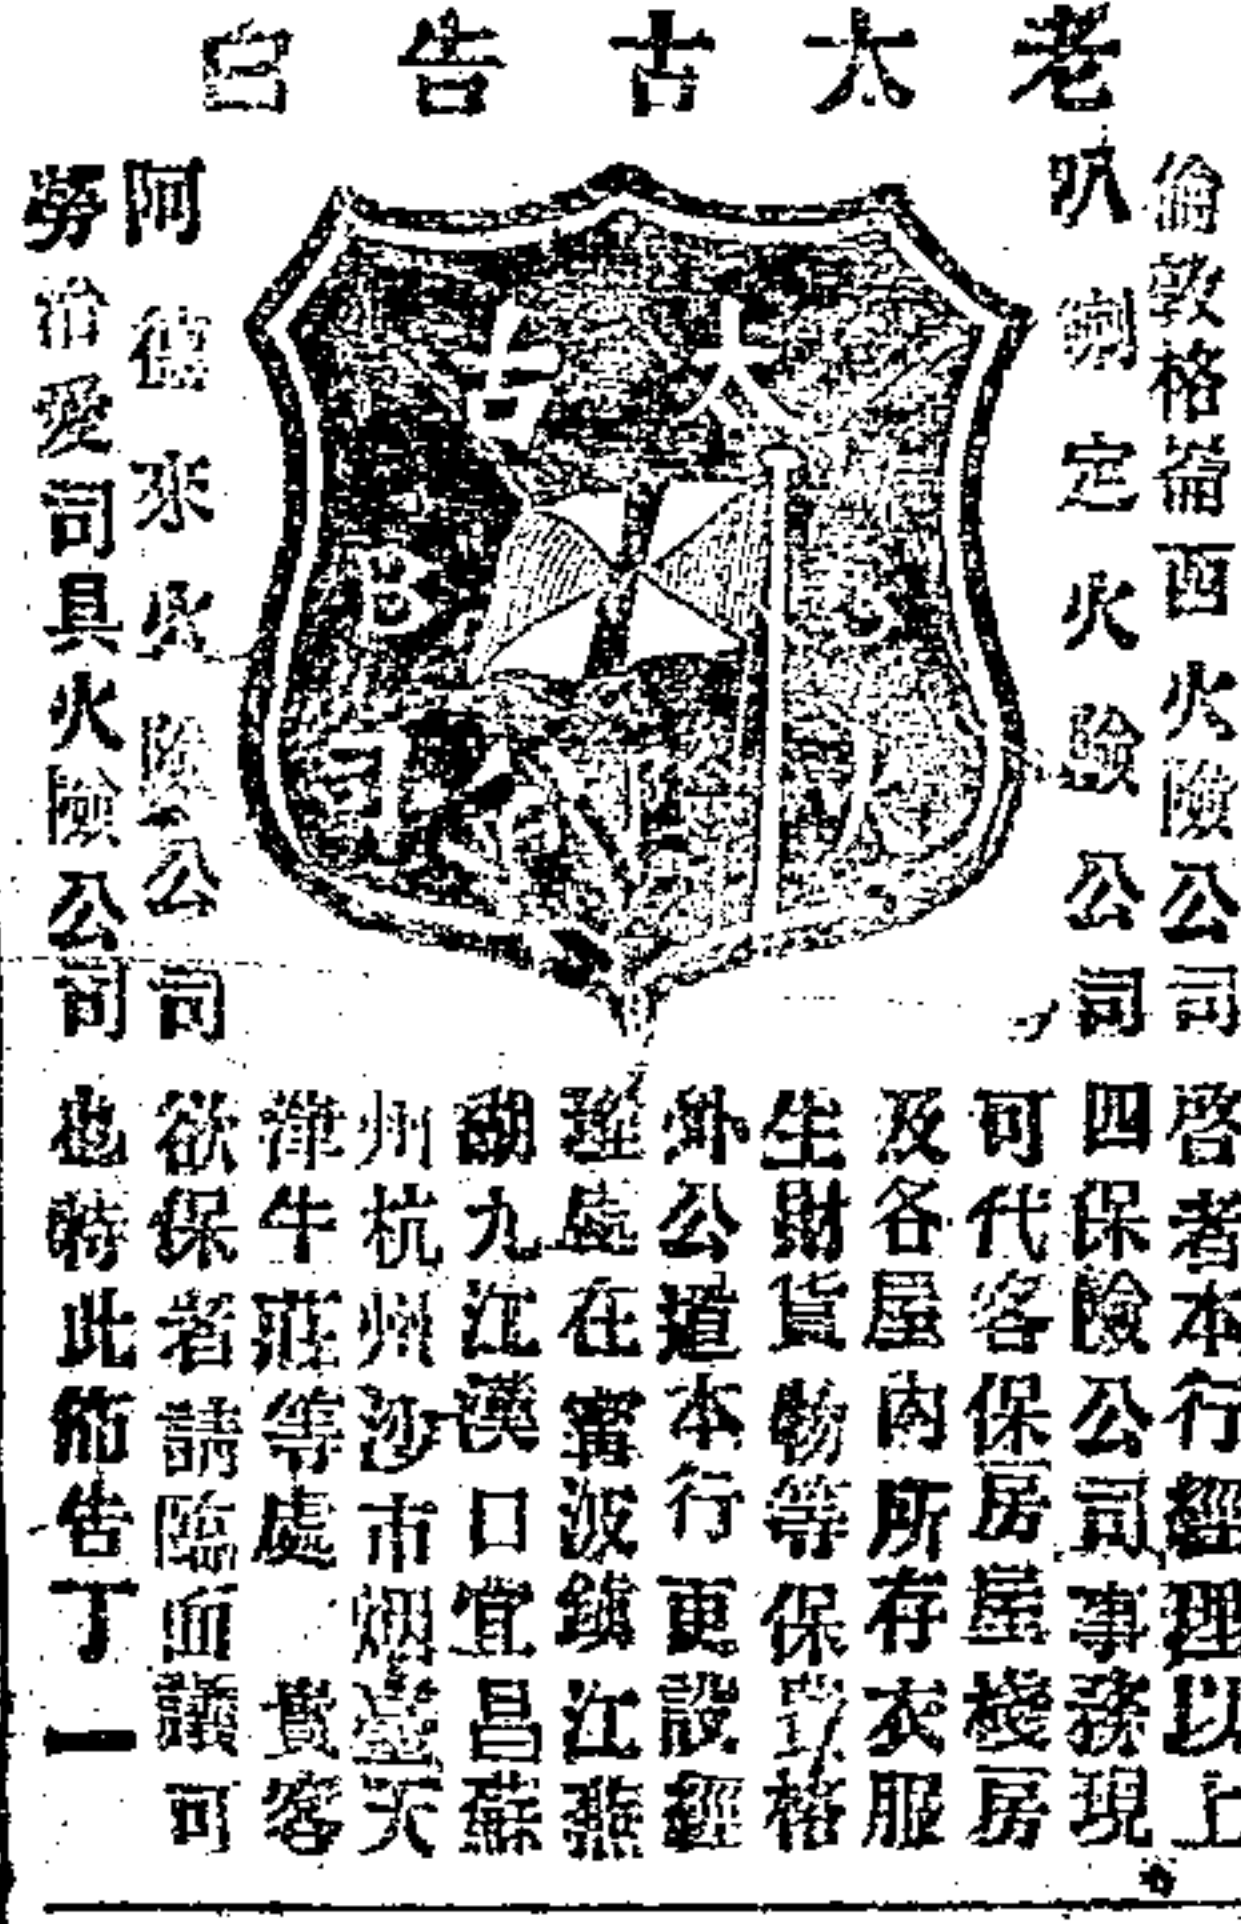 老太古告白
倫敦格崙西火險公司
叭喇定火險公司
太古
阿德來火險公司
勞哈愛司具火險公司
啓者本行經理以上
四保險公司事務現
可代客保房屋棧房
及各屋內所存衣服
生財貨物等保價格
外公道本行更設經
理處在甯波鎮江蕪
湖九江漢口宜昌蘇
州杭州沙市烟臺天
津牛莊等處 貴客
欲保者請臨面議可
也特此佈告丁一